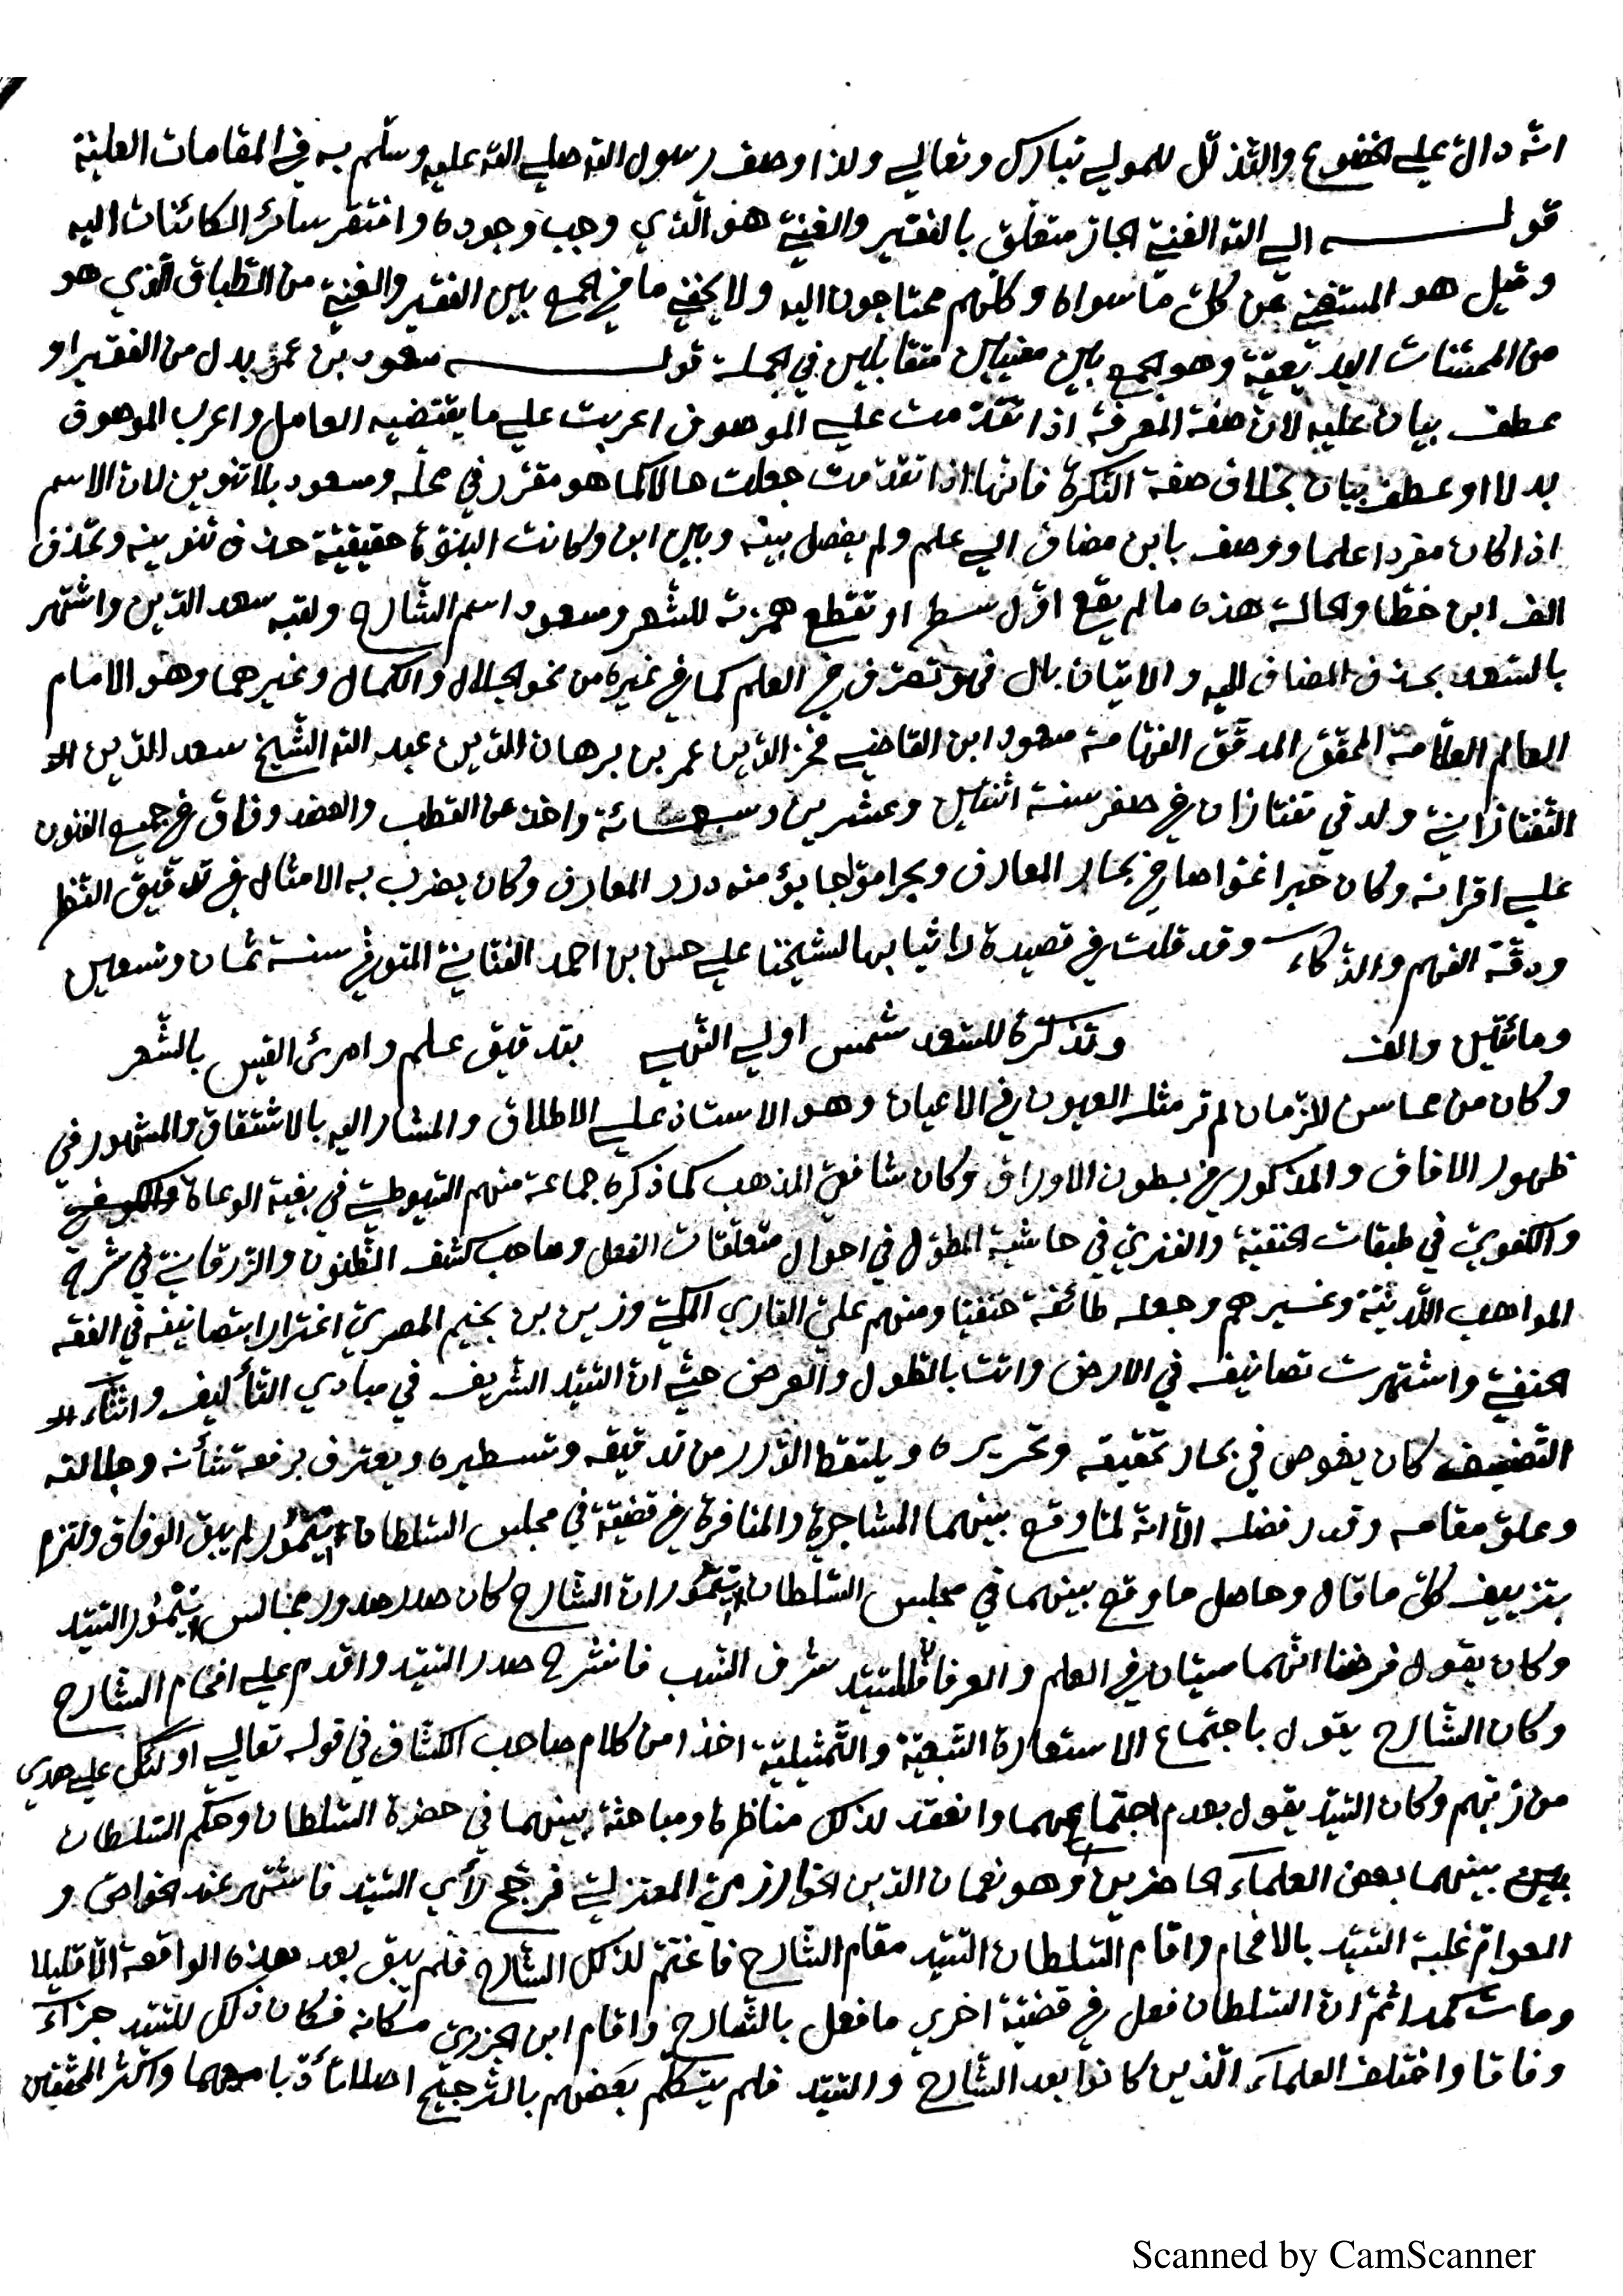 انّه دالّ علي الخضوع والتّذلّل للمولي تبارك وتعالي ولذا وصف رسول الله صلي الله عليه وسلّم به في المقامات العليّة
قولـــه الي الله الغنيّ الجار متعلّق بالفقير والغنيّ هو الّذي وجب وجوده وافتقر سائر الكائنات اليه
وقيل هو المستغني عن كلّ ما سواه وكلّهم محتاجون اليه ولا يخفي ما في الجمع بين الفقير والغنيّ من الطّباق الّذي هو
من المحسّنات البديعيّة وهو الجمع بين معنيين متقابلين في الجملة قولـــه مسعود بن عمر بدل من الفقير او
عطف بيان عليه لان صفة المعرفة اذا تقدّمت علي الموصوف اعربت علي ما يقتضيه العامل واعرب الموصوف
بدلا او عطف بيان بخلاف صفة النّكرة فانّها اذا تقدّمت جعلت حالا كما هو مقرّر في محلّه ومسعود بلا تنوين لان الاسم
اذا كان مفردا علما ووصف بابن مضاف الي علم ولم يفصل بينه وبين ابن وكانت البنوّة حقيقيّة حذف تنوينه وتحذف
الف ابن خطّا والحالة هذه ما لم يقع اوّل سطر او تقطع همزته للشّعر ومسعود اسم الشّارح ولقبه سعد الدّين واشتهر
بالسّعد بحذف المضاف اليه والاتيان بال فهو تصرّف في العلم كما في غيره من نحو الجلال والكمال وغيرهما وهو الامام
العالم العلاّمة المحقّق المدقّق الفهّامة مسعود ابن القاضي فخر الدّين عمر بن برهان الدّين عبد الله الشّيخ سعد الدّين الـ
التّفتازانيّ ولد في تفتازان في صفر سنة اثنتين وعشرين وسبعمائة واخذ عن القطب والعضد وفاق في جميع الفنون
علي اقرانه وكان حبرا غوّاصا في بحار المعارف وبحرا موّاجا يؤ منه درر المعارف وكان يضرب به الامثال في تدقيق النّظر
ودقّة الفهم والذّكاء وقد قلت في قصيدة راثيا بها لشيخنا علي حسن بن احمد الفتّانيّ المتوفّي سنة ثمان وتسعين
ومائتين والف وتذكرة للسّعد شمس اولي النّهي بتدقيق علم وامرئ القيس بالشّعر
وكان من محاسن الزّمان لم تر مثله العيون في الاعيان وهو الاستاذ علي الاطلاق والمشار اليه بالاشتقاق والمشهور في
ظهور الافاق والمذكور في بطون الاوراق وكان شافعيّ المذهب كما ذكره جماعة منهم السّيوطيّ في بغية الوعاة
والكفويّ في طبقات الحنفيّة والفنريّ في حاشية المطوّل في احوال متعلّقات الفعل وصاحب كشف الظّنون والزّرقانيّ في شرح
المواهب اللّدنيّة وغيرهم وجعله طائفة حنفيّا ومنهم عليّ القاري المكّيّ وزين بن نجيم المصريّ اغترارا بتصانيفه في الفقه
الحنفيّ واشتهرت تصانيفه في الارض واتت بالطّول والعرض حتّي ان السّيّد الشّريف في مبادي التّأليف واثناء الـ
التّصنيف كان يغوص في بحار تحقيقه وتحريره ويلتقط الدّرر من تدقيقه وتسطيره ويعترف برفعة شأنه وجلالته
وعلوّ مقامه وقدر فضله الاّ انّه لمّا وقع بينهما المشاجرة والمنافرة في قضيّة في مجلس السّلطان تيمور لم يبق الوفاق والتزم
بتزييف كلّ ما قال وحاصل ما وقع بينهما في مجلس السّلطان تيمور ان الشّارح كان صدر صدور مجالس تيمور السّيّد
وكان يقول فرضنا انّهما سيّان في العلم والعرفان فللسّيّد شرف النّسب فانشرح صدر السّيّد واقدم علي افحام الشّارح
وكان الشّارح يقول باجتماع الاستعارة التّبعيّة والتّمثيليّة اخذا من كلام صاحب الكشّاف في قوله تعالي اولئك علي هدي
من ربّهم وكان السّيّد يقول بعدم اجتماعهما وانعقد لذلك مناظرة ومباحثة بينهما في حضرة السّلطان وحكّم السّلطان
بينهما بعض العلماء الحاضرين وهو نعمان الدّين الخوارزميّ المعتزليّ فرجّح رأي السّيّد فاشتهر عند الخواصّ و
العوامّ غلبة السّيّد بالافحام واقام السّلطان السّيّد مقام الشّارح فاغتمّ لذلك الشّارح فلم يبق بعد هذه الواقعة الاّ قليلا
ومات كمدا ثمّ انّ السّلطان فعل في قضيّة اخري ما فعل بالشّارح واقام ابن الجزريّ مكانه فكان ذلك للسّيّد جزاء
وفاقا واختلف العلماء الّذين كانوا بعد الشّارح والسّيّد فلم يتكلّم بعضهم بالتّرجيح اصلا تأدّبا معهما واكثر المحقّقين
Scanned by CamScanner